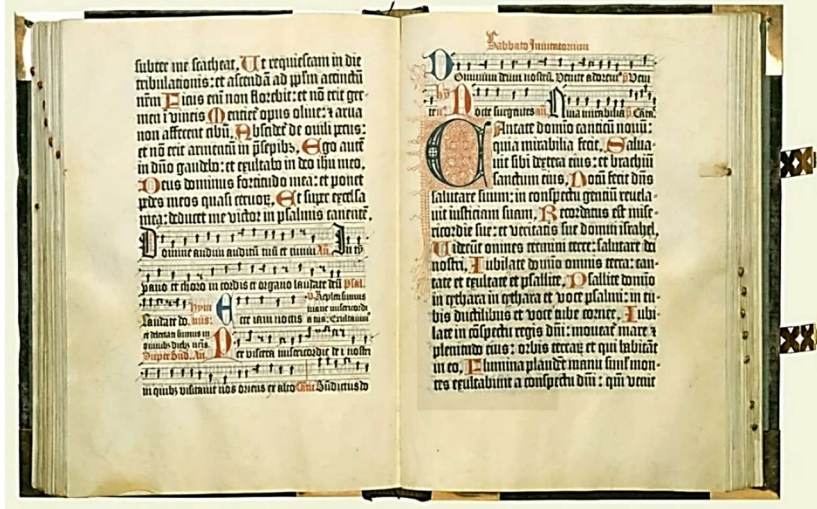 subter me scatheat, Ut requiescam in die
tribulationis: et ascendā ad ipm̄ accinctū
nr̄m Ficus eni non florebit: et nō erit ger-
men ī vineis Mentiet' opus olive: et arva
non afferent cibū, Abscidet' de ovili pecus:
et nō erit armentū in p̄sepibꝫ, Ego autē
in dn̄o gaudebo: et exultabo in deo ihu meo,
Deus dominus fortitudo mea: et ponet
pedes meos quasi cervoꝝ, Et super excelsa
mea: deducet me victor in psalmis canentē,
Domine audivi auditū tuū et timui An̄. In ty
pano et choro in cordis et organo laudate deū Psal.
hym
laudate do. nus: Ecce iam noctis
Super Bn̄d. An̄. Per viscera misericordie dei nostri
in quibꝫ visitavit nos oriens ex alto Cant Bn̄dictus do
Sabbato Invitatorium
Dominum deum nostrū, Venite adorem' p̄s Veni
te: hȳ Nocte surgentes an̄. Quia mirabilia p̄. Canta.
CAntate domīo canticū novū:
quia mirabilia fecit, Salva-
vit sibi dextera eius: et brachiū
sanctum eius, Notū fecit dn̄s
salutare suum: in conspectu gentiū revela-
vit iusticiam suam, Recordatus est mise-
ricordie sue: et veritatis sue domui israhel,
Viderūt omnes termini terre: salutare dei
nostri, Iubilate domīo omnis terra: can-
tate et exultate et psallite, Psallite domīo
in cythara in cythara et voce psalmi: in tu-
bis ductilibus et voce tube cornee, Iubi-
late in cōspectu regis dn̄i: moveat' mare et
plenitudo eius: orbis terraꝝ et qui habitāt
in eo, Flumina plaudēt manu simł mon-
tes exultabunt a conspectu dn̄i: qm̄ venit